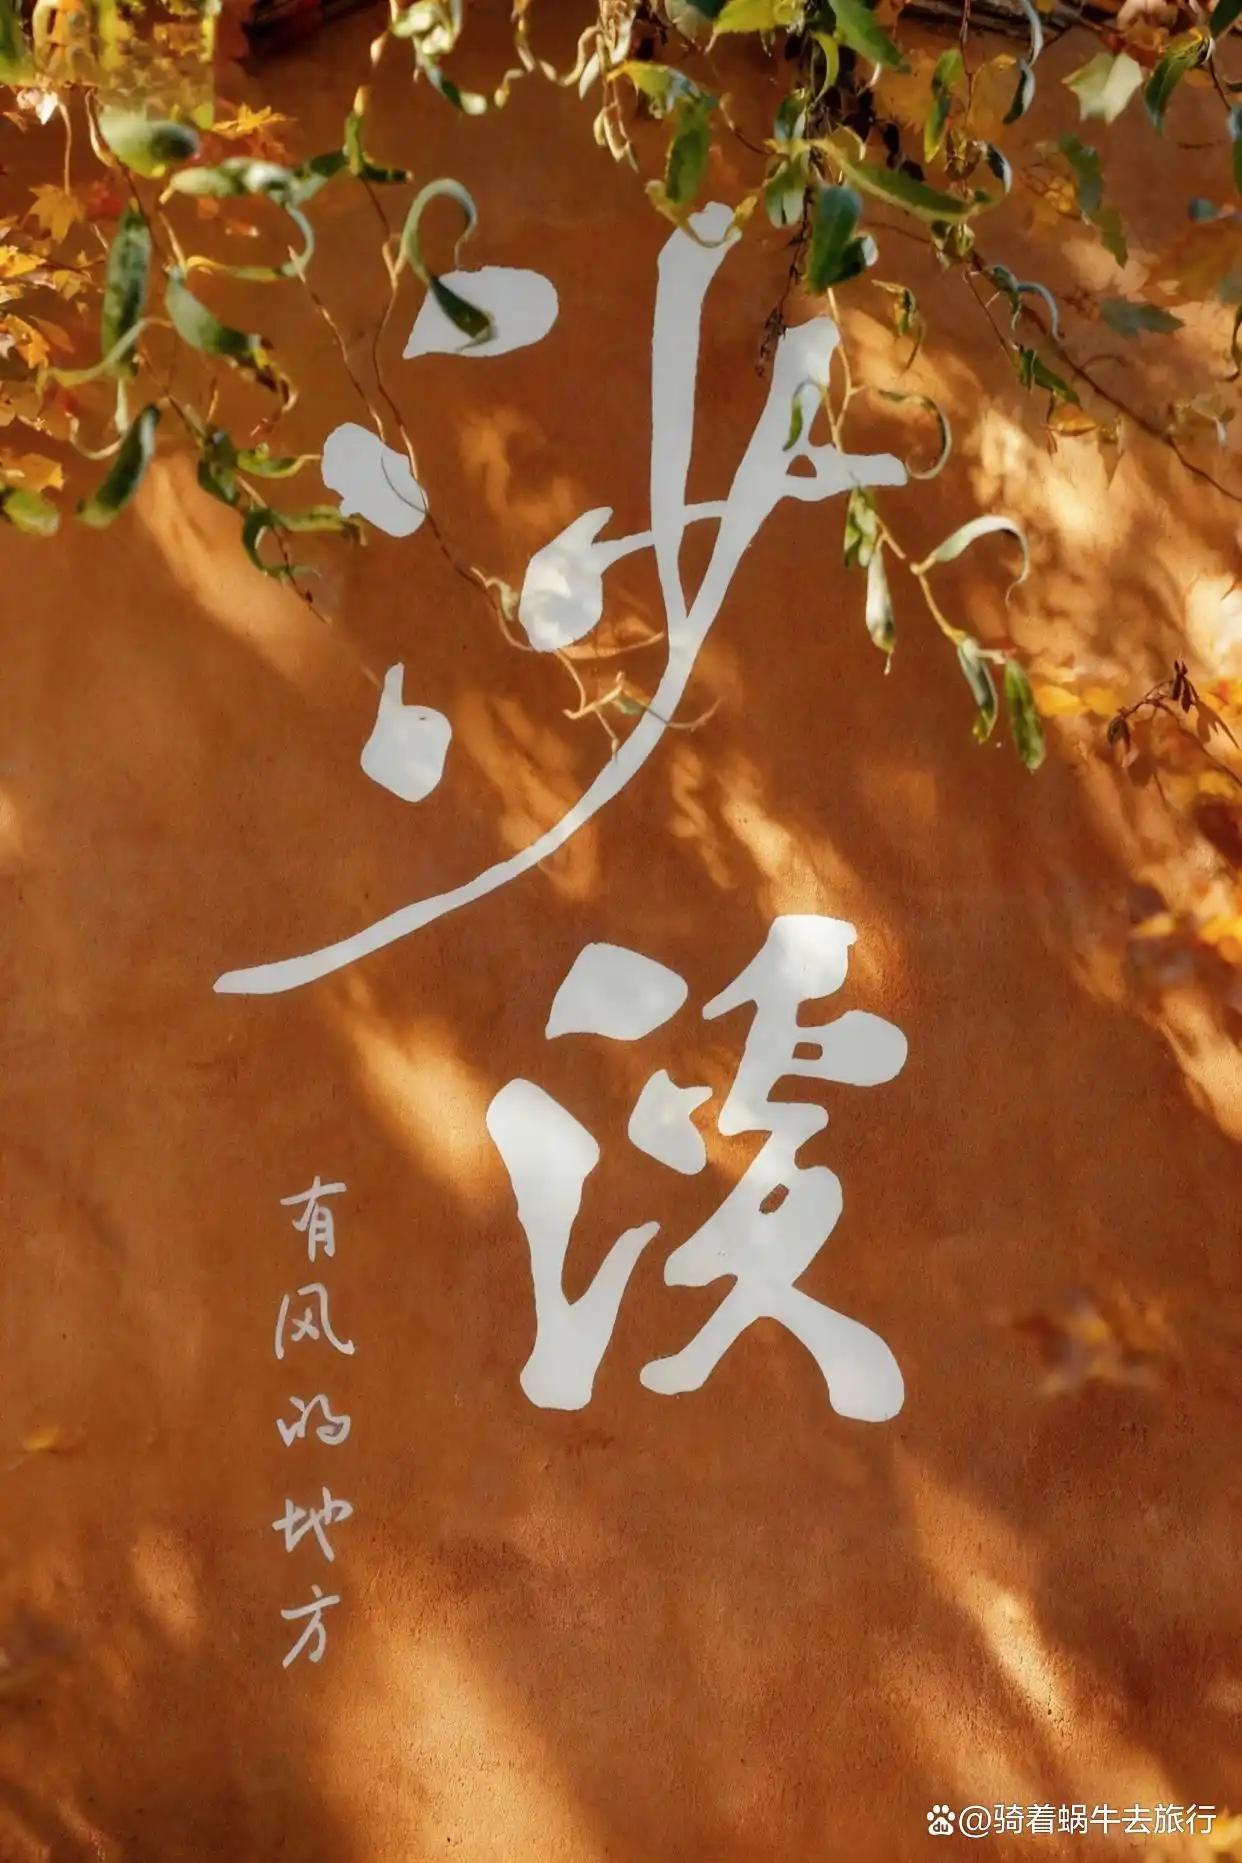 沙溪
有风的地方
@骑着蜗牛去旅行